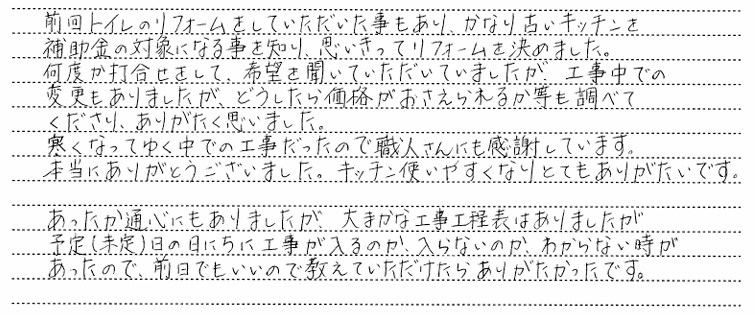 前回トイレのリフォームをしていただいた事もあり、かなり古いキッチンを
補助金の対象になる事を知り、思いきってリフォームを決めました。
何度か打合せをして、希望を聞いていただいていましたが、工事中での
変更もありましたが、どうしたら価格がおさえられるか等も調べて
くださり、ありがたく思いました。
寒くなってゆく中での工事だったので職人さんにも感謝しています。
本当にありがとうございました。キッチン使いやすくなりとてもありがたいです。
あったか通心にもありましたが、大まかな工事工程表はありましたが
予定(未定)日の日にちに工事が入るのか、入らないのか、わからない時が
あったので、前日でもいいので教えていただけたらありがたかったです。